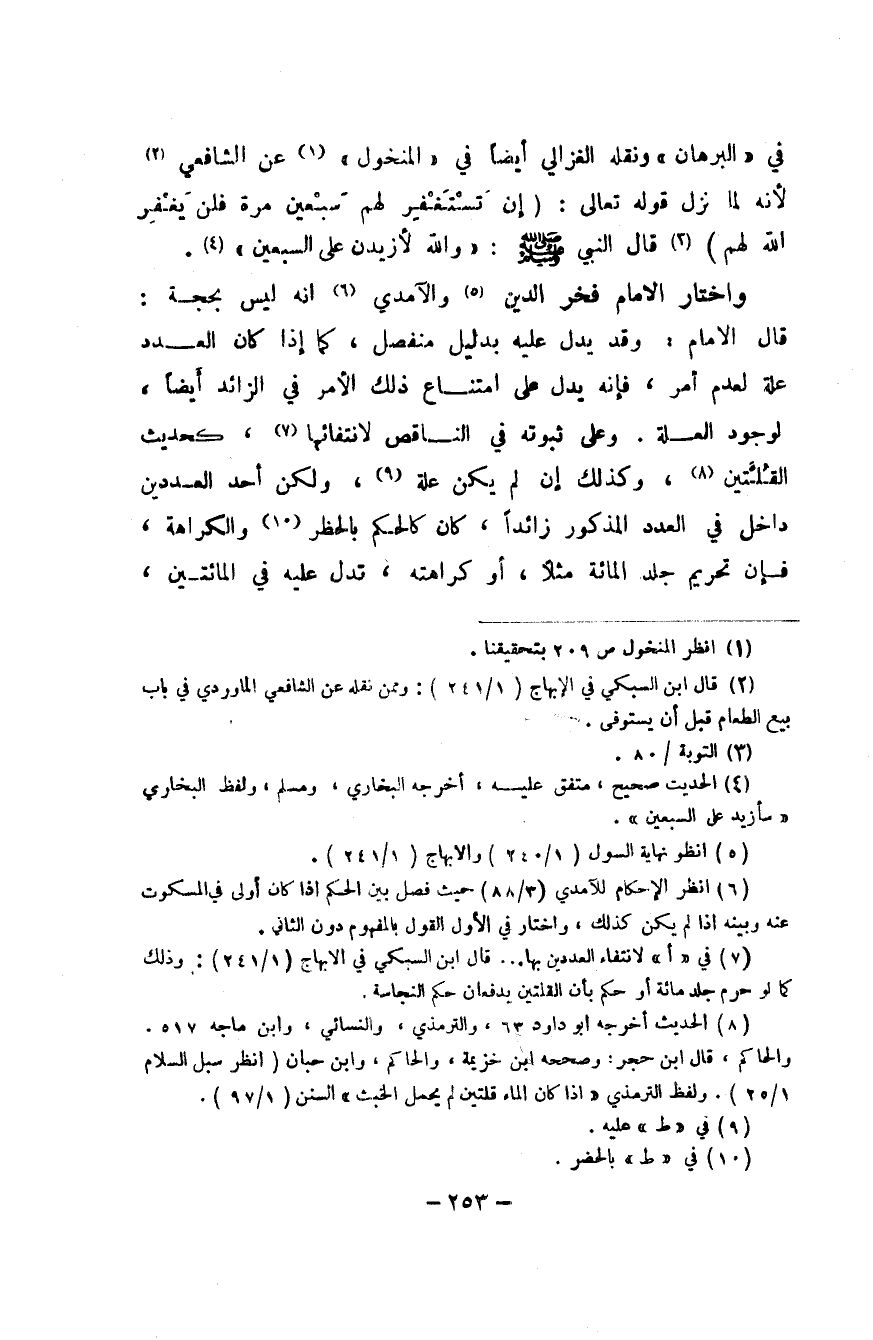 في « البرهان » ونقله الغزالي أيضاً في « المنخول » (١) عن الشافعي (٢)
لأنه لما نزل قوله تعالى : ( إن تَستْتَغْفِر لهم سَبْعين مرة فلن يَغْفِر
الله لهم ) (٣) قال النبي ﷺ : « والله لأزيدن على السبعين » (٤) .
واختار الامام فخر الدين (٥) والآمدي (٦) انه ليس بحجة :
قال الامام : وقد يدل عليه بدليل منفصل ، كما إذا كان العدد
علة لعدم أمر ، فإنه يدل على امتناع ذلك الأمر في الزائد أيضاً ،
لوجود العلة . وعلى ثبوته في الناقص لانتفائها (٧) ، كحديث
القُلَّتين (٨) ، وكذلك إن لم يكن علة (٩) ، ولكن أحد العددين
داخل في العدد المذكور زائداً ، كان كالحكم بالحظر (١٠) والكراهة ،
فإن تحريم جلد المائة مثلاً ، أو كراهته ، تدل عليه في المائتين ،
(١) انظر المنخول ص ٢٠٩ بتحقيقنا .
(٢) قال ابن السبكي في الإبهاج ( ٢٤١/١ ) : وممن نقله عن الشافعي الماوردي في باب
بيع الطعام قبل أن يستوفى .
(٣) التوبة / ٨٠ .
(٤) الحديث صحيح ، متفق عليه ، أخرجه البخاري ، ومسلم ، ولفظ البخاري
« سأزيد على السبعين » .
(٥) انظو نهاية السول ( ٢٤٠/١ ) والابهاج ( ٢٤١/١ ) .
(٦) انظر الإحكام للآمدي (٨٨/٣) حيث فصل بين الحكم اذا كان أولى في المسكوت
عنه وبينه اذا لم يكن كذلك ، واختار في الأول القول بالمفهوم دون الثاني .
(٧) في « أ » لانتفاء العددين بها... قال ابن السبكي في الابهاج (٢٤١/١) : وذلك
كما لو حرم جلد مائة أو حكم بأن القلتين يدفعان حكم النجاسة .
(٨) الحديث أخرجه ابو داود ٦٣ ، والترمذي ، والنسائي ، وابن ماجه ٥١٧ .
والحاكم ، قال ابن حجر : وصححه ابن خزيمة ، والحاكم ، وابن حبان ( انظر سبل السلام
٢٥/١ ) . ولفظ الترمذي « اذا كان الماء قلتين لم يحمل الخبث » السنن ( ٩٧/١ ) .
(٩) في « ط » عليه .
(١٠) في « ط » بالحضر .
– ٢٥٣ –